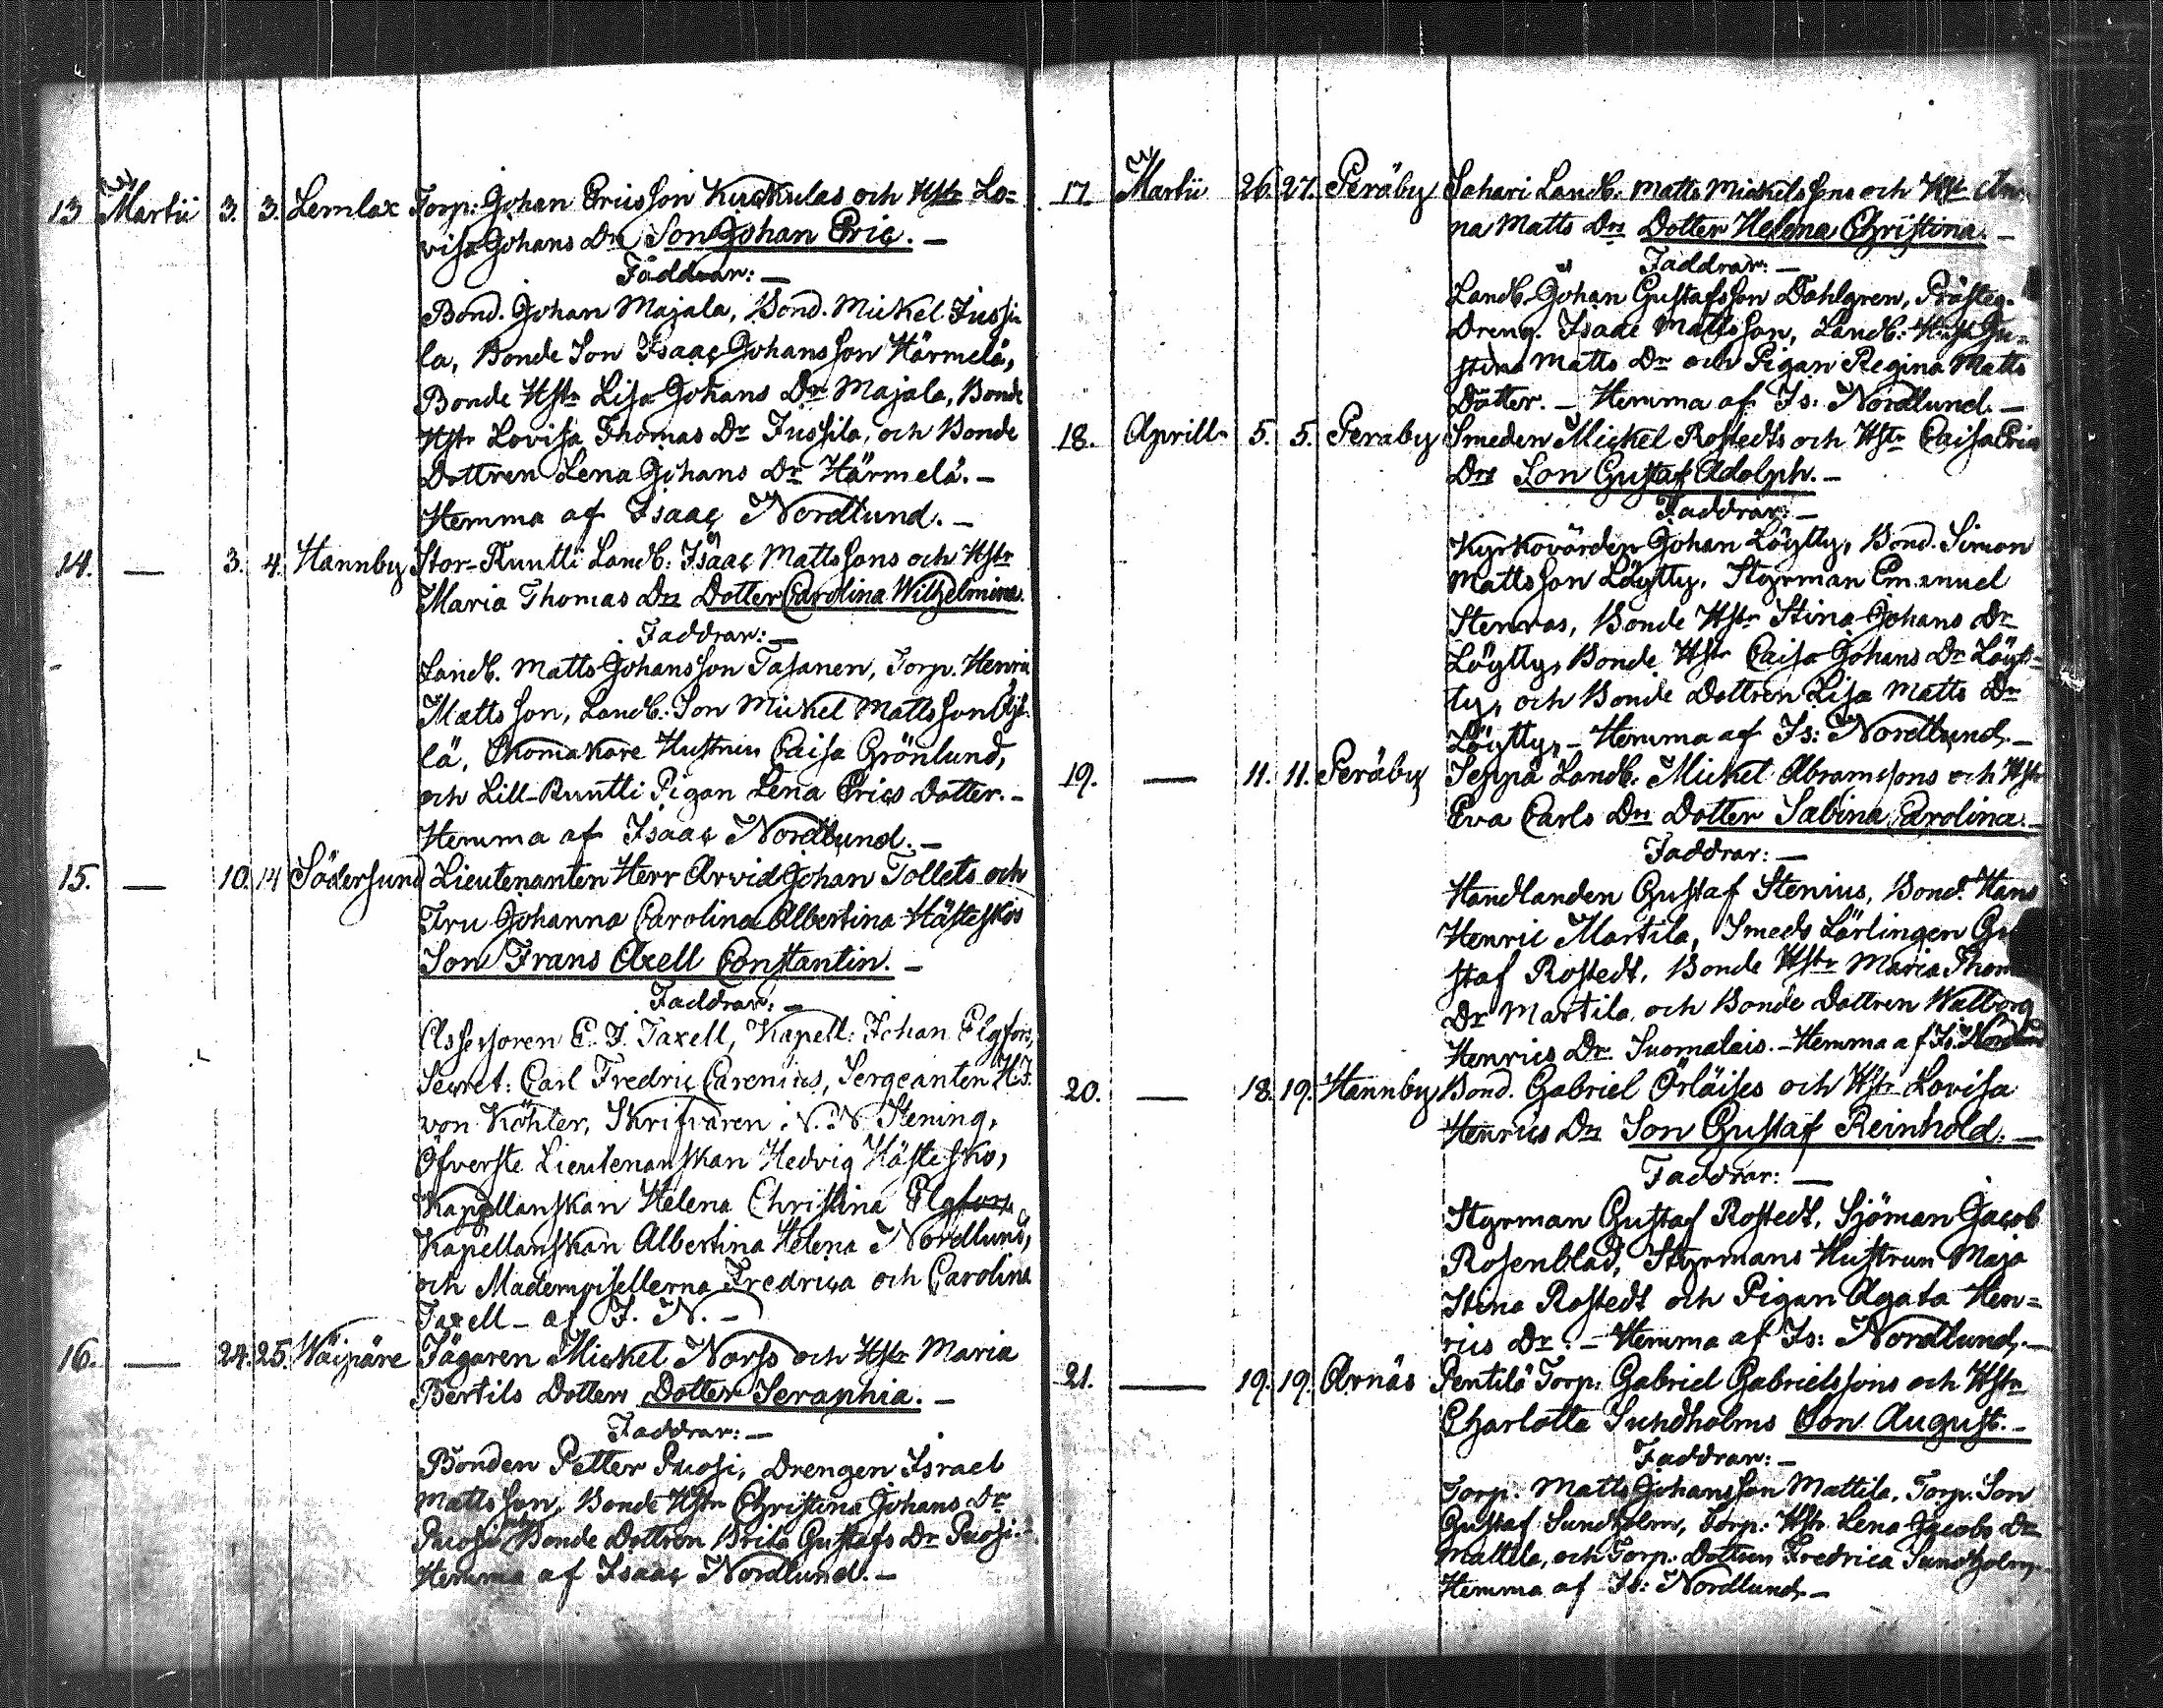 13 Martii 3. 3. Lemlax Torp: Johan Ericsson Kuckulas och Hstr Lo=
visa Johans Drs Son Johan Eric. —
Faddrar: —
Bond. Johan Majala, Bond. Mickel Jussi
la, Bonde Son Isaac Johansson Härmelä,
Bonde Hstr Lisa Johans Dr Majala, Bonde
Hstr Lovisa Thomas Dr Jussila, och Bonde
Dottren Lena Johans Dr Härmelä. —
Hemma af Isaac Nordlund. —
14. — 3. 4. Hannby Stor-Runtti Landb: Isaac Mattssons och Hstr
Maria Thomas Drs Dotter Carolina Wilhelmina.
Faddrar: —
Landb. Matts Johansson Tasanen, Torp. Henric
Mattsson, Landb: Son Mickel Mattsson
lä, Skomakare Hustrun Caisa Grönlund,
och Lill-Runtti Pigan Lena Erics Dotter. —
Hemma af Isaac Nordlund. —
15. — 10. 14 Södersund Lieutenanten Herr Arvid Johan Tollets och
Fru Johanna Carolina Albertina Hästeskos
Son Frans Axell Constantin. —
Faddrar: —
Assessoren C. J. Taxell, Kapell: Johan Elgfors,
Secret: Carl Fredric Carenius, Sergeanten H.J.
von Köhler, Skrifvaren N. N. Stening,
Öfverste Lieutenanskan Hedvig Hästesko,
Kapellanskan Helena Christina Elgfors,
Kapellanskan Albertina Helena Nordlund,
och Mademoisellerna Fredrica och Carolina
Taxell — af I. N. —
16. — 24. 25. Wäipäre Jägaren Mickel Norss och Hstr Maria
Bertils Dotters Dotter Seraphia. —
Faddrar: —
Bonden Petter Puosi, Drengen Israel
Mattsson, Bonde Hstr Christina Johans Dr
Puosi Bonde Dottren Brita Gustafs Dr Puosi.
Hemma af Isaac Nordlund. —
17. Martii 26. 27. Peräby Sahari Landb: Matts Mickelssons och Hstr An
na Matts Drs Dotter Helena Christina. —
Faddrar: —
Landb. Johan Gustafsson Dahlgren, Prästeg.
Dreng. Isaac Mattsson, Landb: Hust Ju=
stina Matts Dr och Pigan Regina Matts
Dotter. — Hemma af Is: Nordlund. —
18. Aprill 5. 5. Peräby Smeden Mickel Rostedts och Hstr Caisa Erics
Drs Son Gustaf Adolph. —
Faddrar: —
Kyrkovärden Johan Löytty, Bond. Simon
Mattsson Löytty, Styrman Emanuel
Stenros, Bonde Hstr Stina Johans Dr
Löytty, Bonde Hstr Caisa Johans Dr Löyt=
ty, och Bonde Dottren Lisa Matts Dr
Löytty, — Hemma af Is: Nordlund. —
19. — 11. 11. Peräby Seppä Landb: Mickel Abramssons och Hstr
Eva Carls Drs Dotter Sabina Carolina. —
Faddrar: —
Handlanden Gustaf Stenius, Bond. Hans
Henric Martila, Smeds Lärlingen Gu
staf Rostedt, Bonde Hstr Maria Thom
Dr Martila, och Bonde Dottren Walborg
Henrics Dr Suomalais. — Hemma af Is: Nordlund
20. — 18. 19. Hannby Bond. Gabriel Örläises och Hstr Lovisa
Henrics Drs Son Gustaf Reinhold. —
Faddrar: —
Styrman Gustaf Rostedt, Sjöman Jacob
Rosenblad, Styrmans Hustrun Maja
Stina Rostedt och Pigan Agata Hen=
rics Dr. — Hemma af Is: Nordlund. —
21. — 19. 19. Arnäs Pentilä Torp. Gabriel Gabrielssons och Hstr
Charlotta Sundholms Son August. —
Faddrar: —
Torp. Matts Johansson Mattila, Torp. Son
Gustaf Sundholm, Torp: Hstr Lena Jacobs Dr
Mattila, och Torp. Dottren Fredrica Sundholm,
Hemma af Is: Nordlund. —